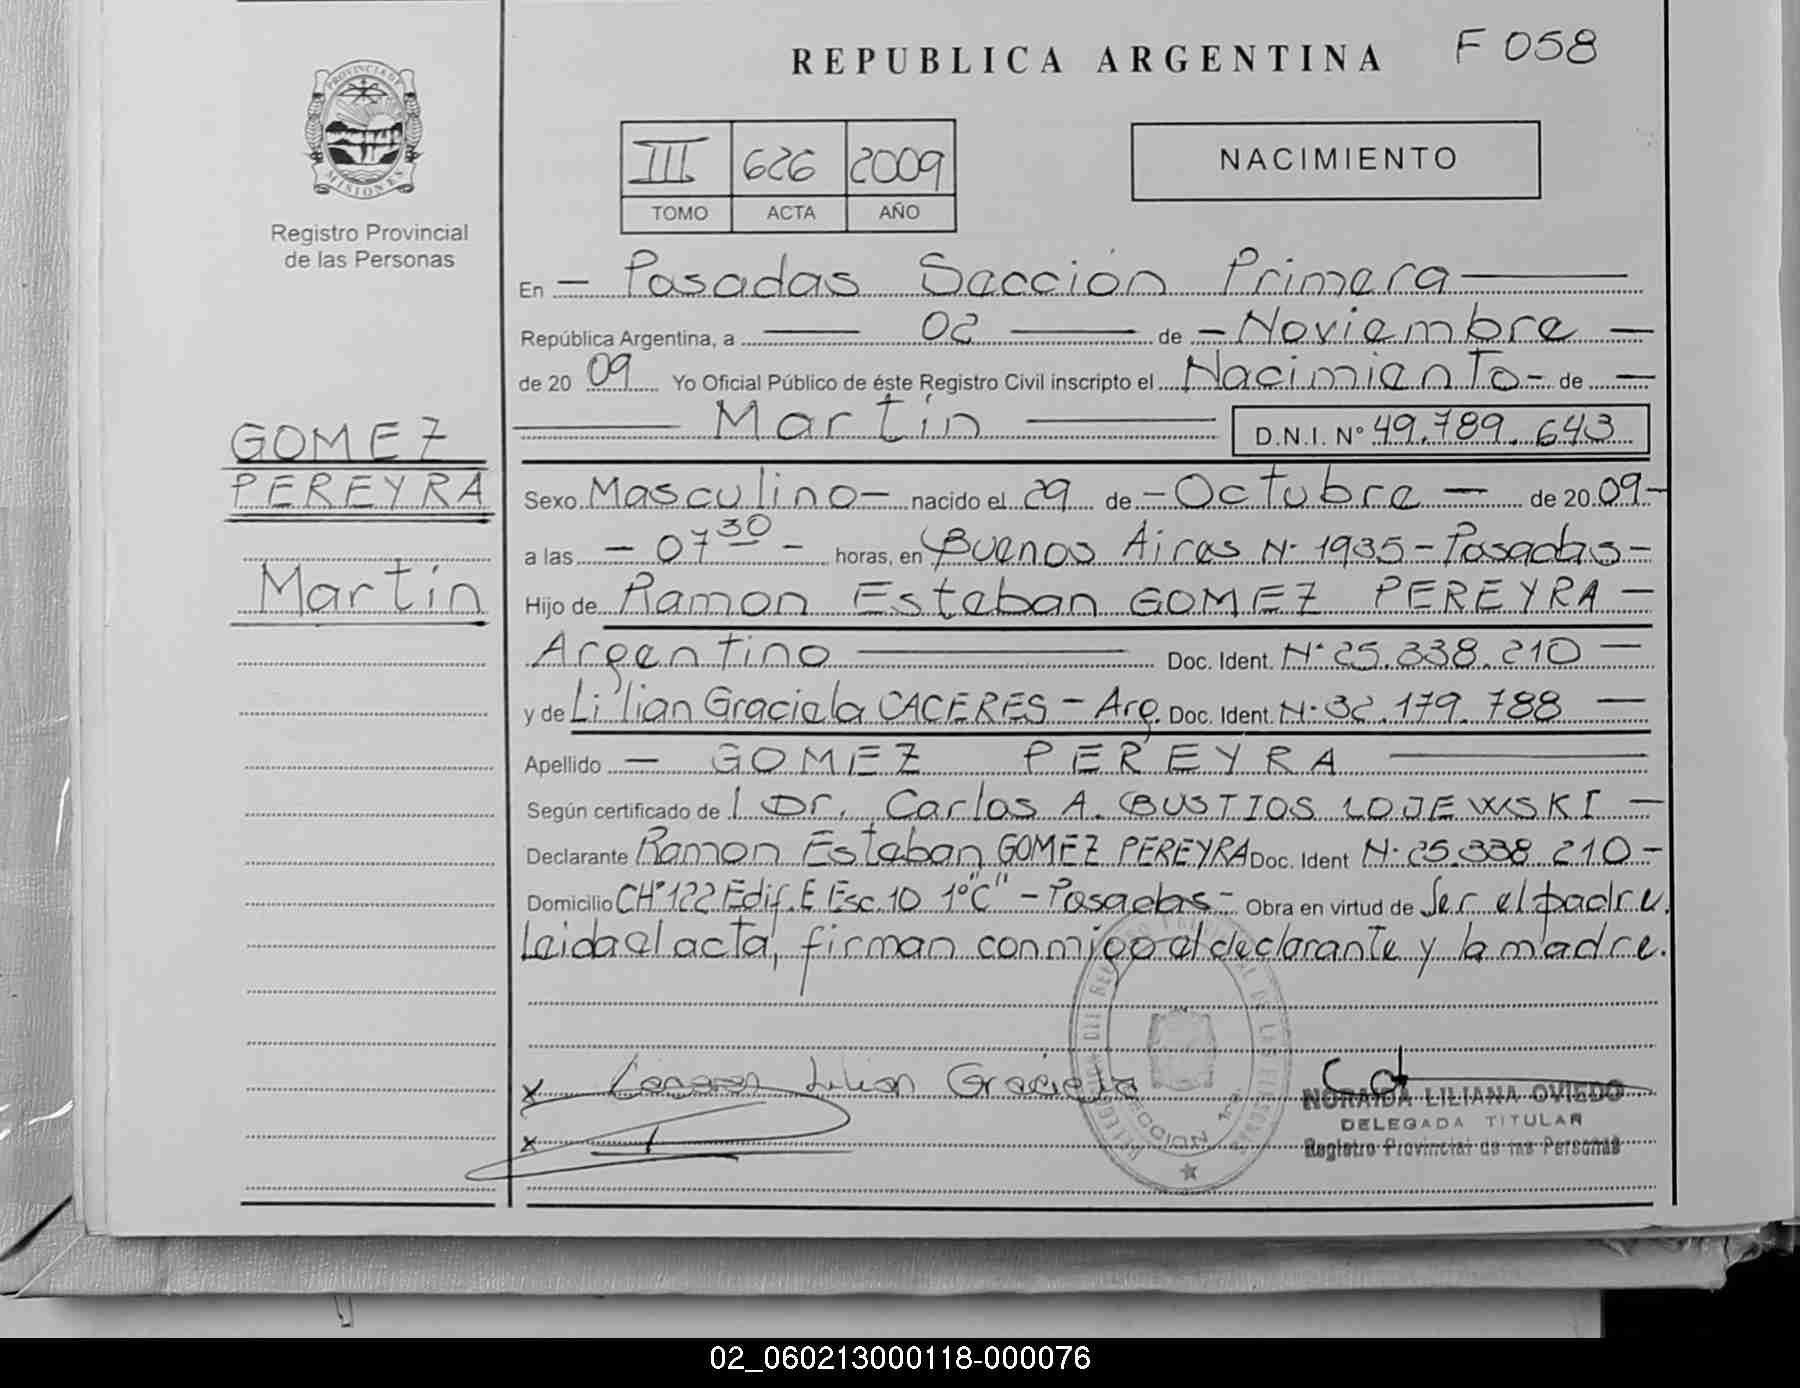 REPUBLICA ARGENTINA F 058
PROVINCIA DE
MISIONES
Registro Provincial
de las Personas
III 626 2009
TOMO ACTA AÑO
NACIMIENTO
En - Posadas Sección Primera
República Argentina, a 02 de - Noviembre -
de 2009 Yo Oficial Público de éste Registro Civil inscripto el Nacimiento - de -
Martín D.N.I. Nº 49.789.643
GOMEZ
PEREYRA
Martín
Sexo Masculino - nacido el 29 de - Octubre - de 2009 -
a las - 07 30 - horas, en Buenos Aires Nº 1935 - Posadas -
Hijo de Ramon Esteban GOMEZ PEREYRA -
Argentino Doc. Ident. Nº 25.338.210 -
y de Lilian Graciela CACERES - Arg. Doc. Ident. Nº 32.179.788 -
Apellido - GOMEZ PEREYRA
Según certificado de l Dr. Carlos A. BUSTIOS LOJEWSKI -
Declarante Ramon Esteban GOMEZ PEREYRA Doc. Ident Nº 25.338.210 -
Domicilio CHº122 Edif. E Esc. 10 1º"C" - Posadas - Obra en virtud de Ser el padre.
Leida el acta, firman conmigo el declarante y la madre.
x Lilian Graciela
x
SECCION 1ra.
NORAIDA LILIANA OVIEDO
DELEGADA TITULAR
Registro Provincial de las Personas
02_060213000118-000076